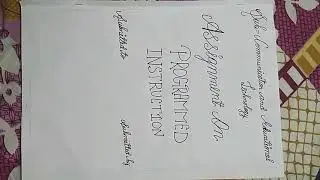 Sub:- Communication and Educational
Technology
Assignment On
PROGRAMMED
INSTRUCTION
Submitted to
Submitted by